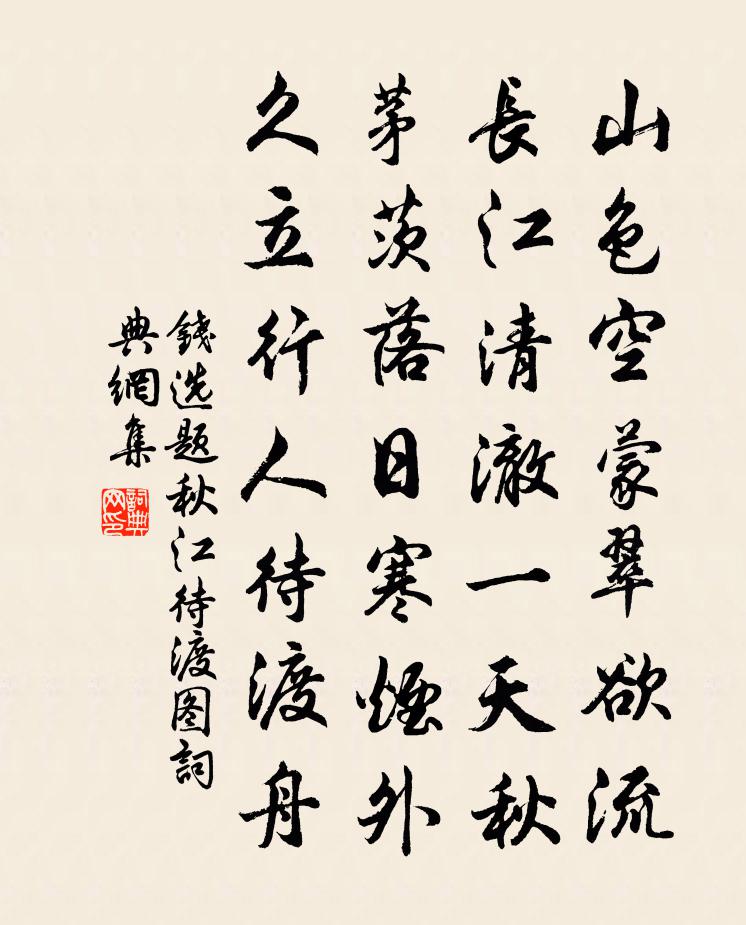 山色空蒙翠欲流
長江清澈一天秋
茅茨落日寒煙外
久立行人待渡舟
錢选题秋江待渡图詞
典網集
詞典网印